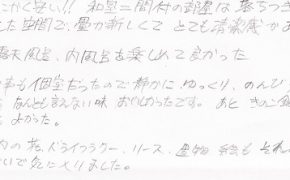 にかく安い!! 和室二間付の部屋は落ちつき
した空間で、畳が新しくて とても清潔感があ
露天風呂、内風呂を楽しめて良かった
事も個室だったので静かに、ゆっくり、のんび
なんとも言えない味 おいしかったです。あと きのこ
もよかった。
内の花、ドライフラワー、リース、置物
いで気に入りました。